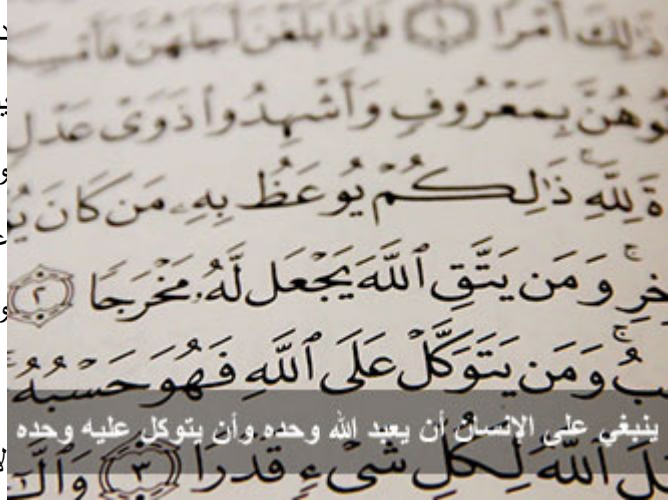 ذَٰلِكَ أَمْرًا فَإِذَا بَلَغْنَ أَجَلَهُنَّ
بِمَعْرُوفٍ وَأَشْهِدُوا۟ ذَوَىْ عَدْلٍ
لِلَّهِ ذَٰلِكُمْ يُوعَظُ بِهِۦ مَن كَانَ
وَمَن يَتَّقِ ٱللَّهَ يَجْعَل لَّهُۥ مَخْرَجًا ٢
وَمَن يَتَوَكَّلْ عَلَى ٱللَّهِ فَهُوَ حَسْبُهُۥ
ينبغي على الإنسان أن يعبد الله وحده وأن يتوكل عليه وحده
ٱللَّهُ لِكُلِّ شَىْءٍ قَدْرًا ٣